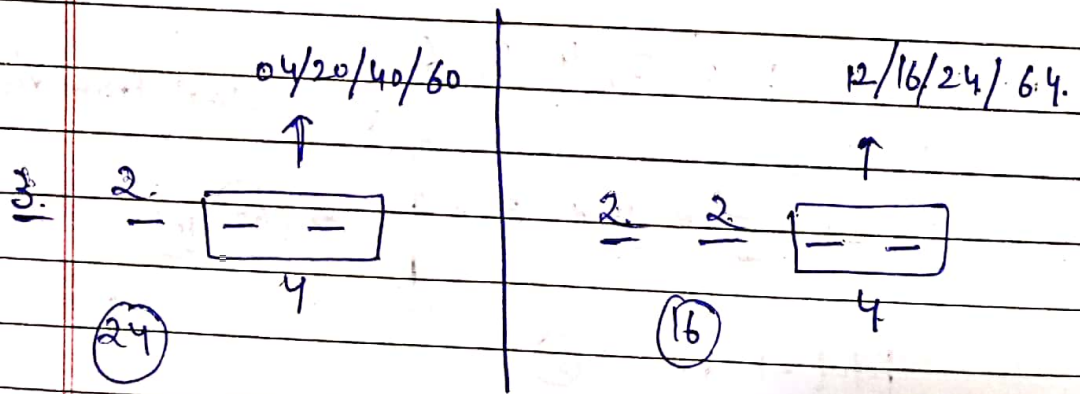 04/20/40/60
3. 2. _ _
4
24
12/16/24/64.
2. 2. _ _
4
16